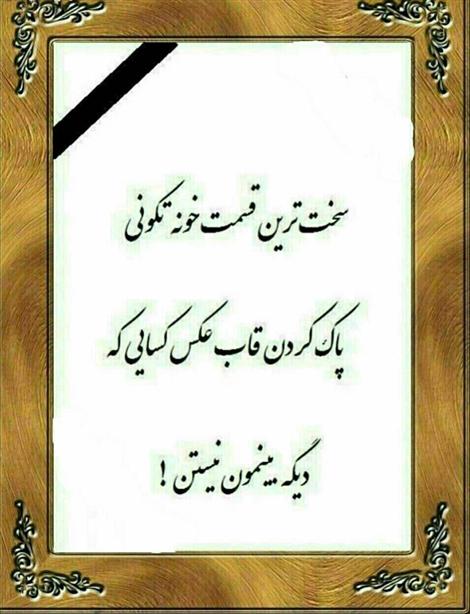 سخت ترین قسمت خونه تکونی
پاک کردن قاب عکس کسایی که
دیگه بینمون نیستن !